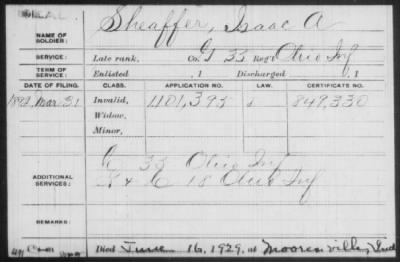 NAME OF SOLDIER: Sheaffer, Isaac A
SERVICE: Late rank, Co. G 33 Reg't Ohio Inf
TERM OF SERVICE: Enlisted , 1 Discharged , 1
DATE OF FILING. CLASS. APPLICATION NO. LAW. CERTIFICATE NO.
Mar 31 Invalid, 1101,395 849,330
Widow,
Minor,
ADDITIONAL SERVICES: C 33 Ohio Inf
K & C 18 Ohio Inf
REMARKS:
Died June 16, 1929, at Mooresville, Ind